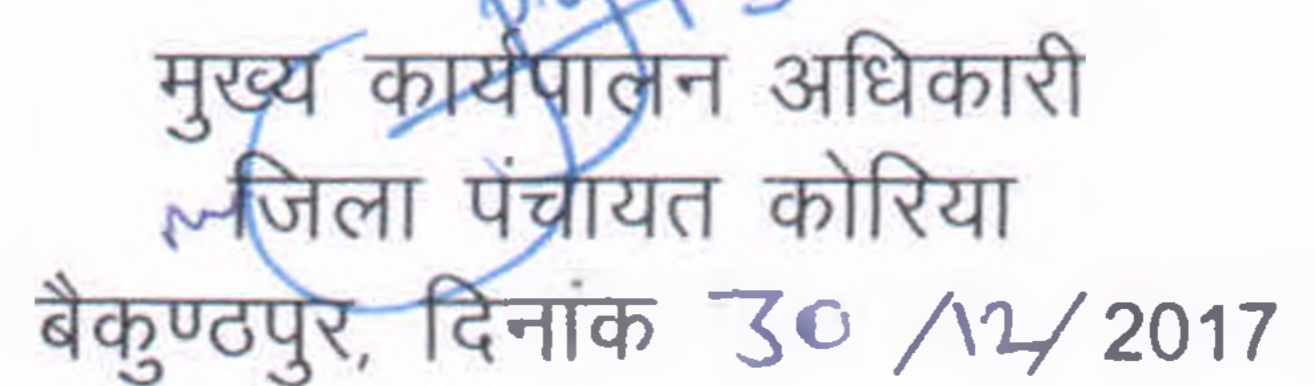 मुख्य कार्यपालन अधिकारी
जिला पंचायत कोरिया
बैकुण्ठपुर, दिनांक 30/12/2017